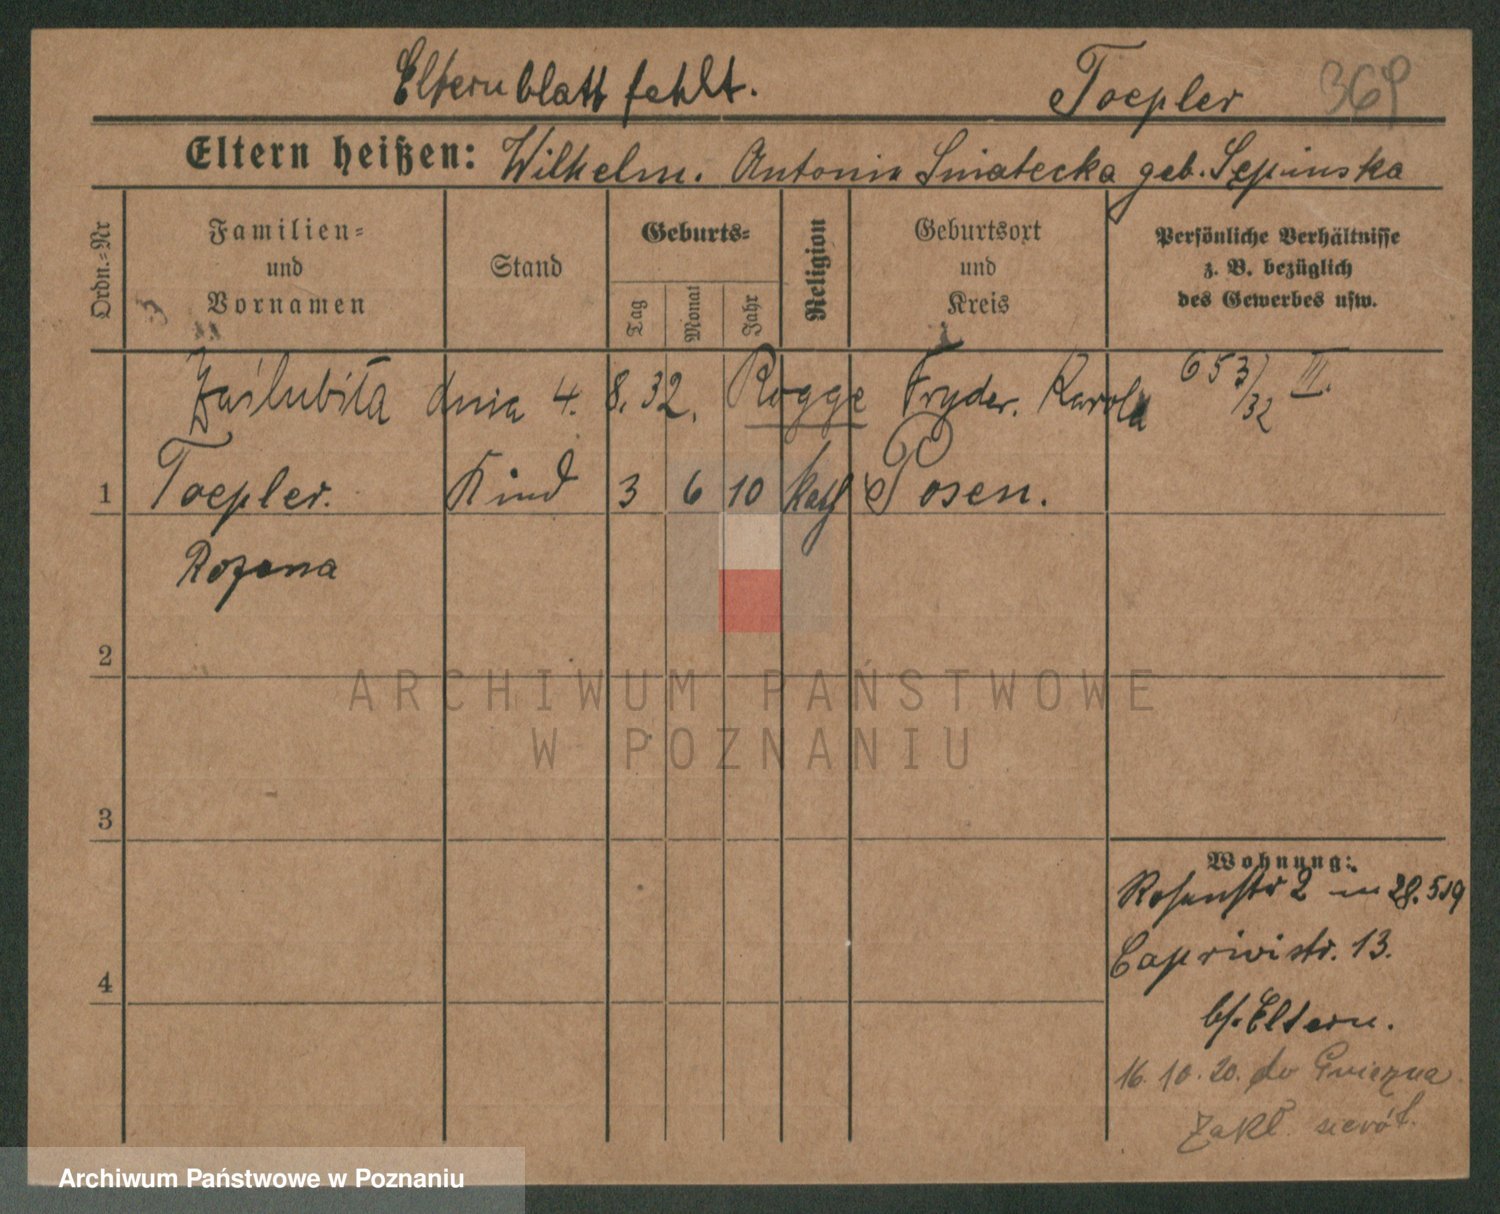 Elternblatt fehlt.
Toepler 369
Eltern heißen: Wilhelm. Antonia Smiatecka geb. Sępinska
Ordn.=Nr
Familien=
und
Vornamen
Stand
Geburts=
Tag
Monat
Jahr
Religion
Geburtsort
und
Kreis
Persönliche Verhältnisse
z. B. bezüglich
des Gewerbes usw.
Zaślubiła dnia 4. 8. 32. Rogge Fryder. Karola 653/32 III.
1 Toepler. Kind 3 6 10 kath Posen.
Rozena
2
ARCHIWUM PAŃSTWOWE
W POZNANIU
3
Wohnung:
Rosenstr 2 28. 5 19
Caprivistr. 13.
4
bf. Eltern.
16. 10. 20. do Gniezna
Zakł. sierót.
Archiwum Państwowe w Poznaniu